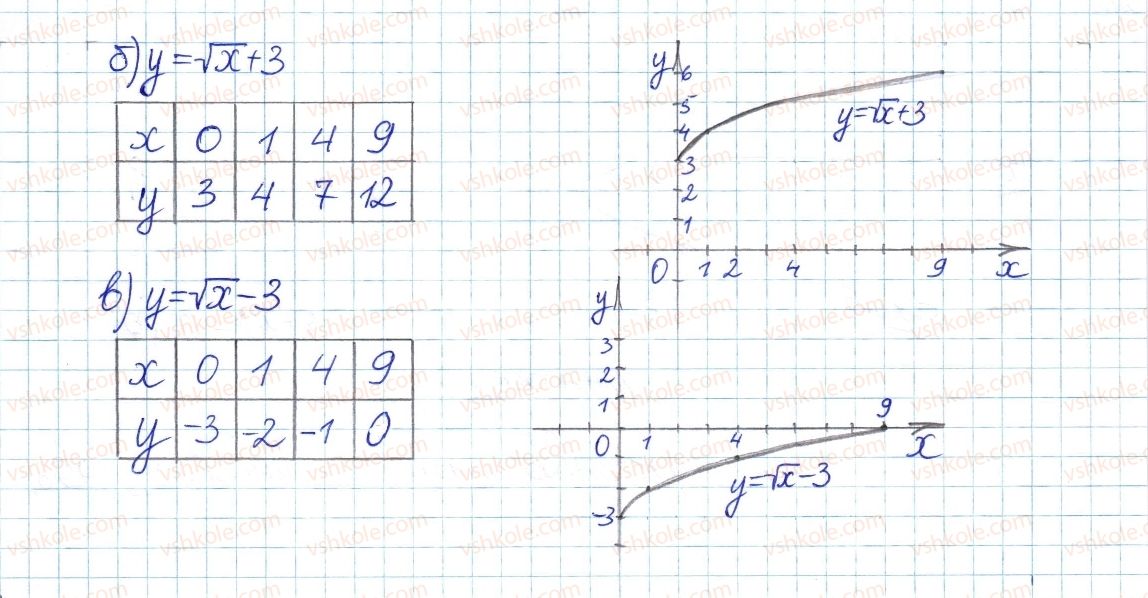 б) y = √x + 3
x 0 1 4 9
y 3 4 7 12
y
6
5
4
3
2
1
0 1 2 4 9 x
y=√x+3
в) y = √x - 3
x 0 1 4 9
y -3 -2 -1 0
y
3
2
1
9
0 1 4 x
y=√x-3
-3
vshkole.com